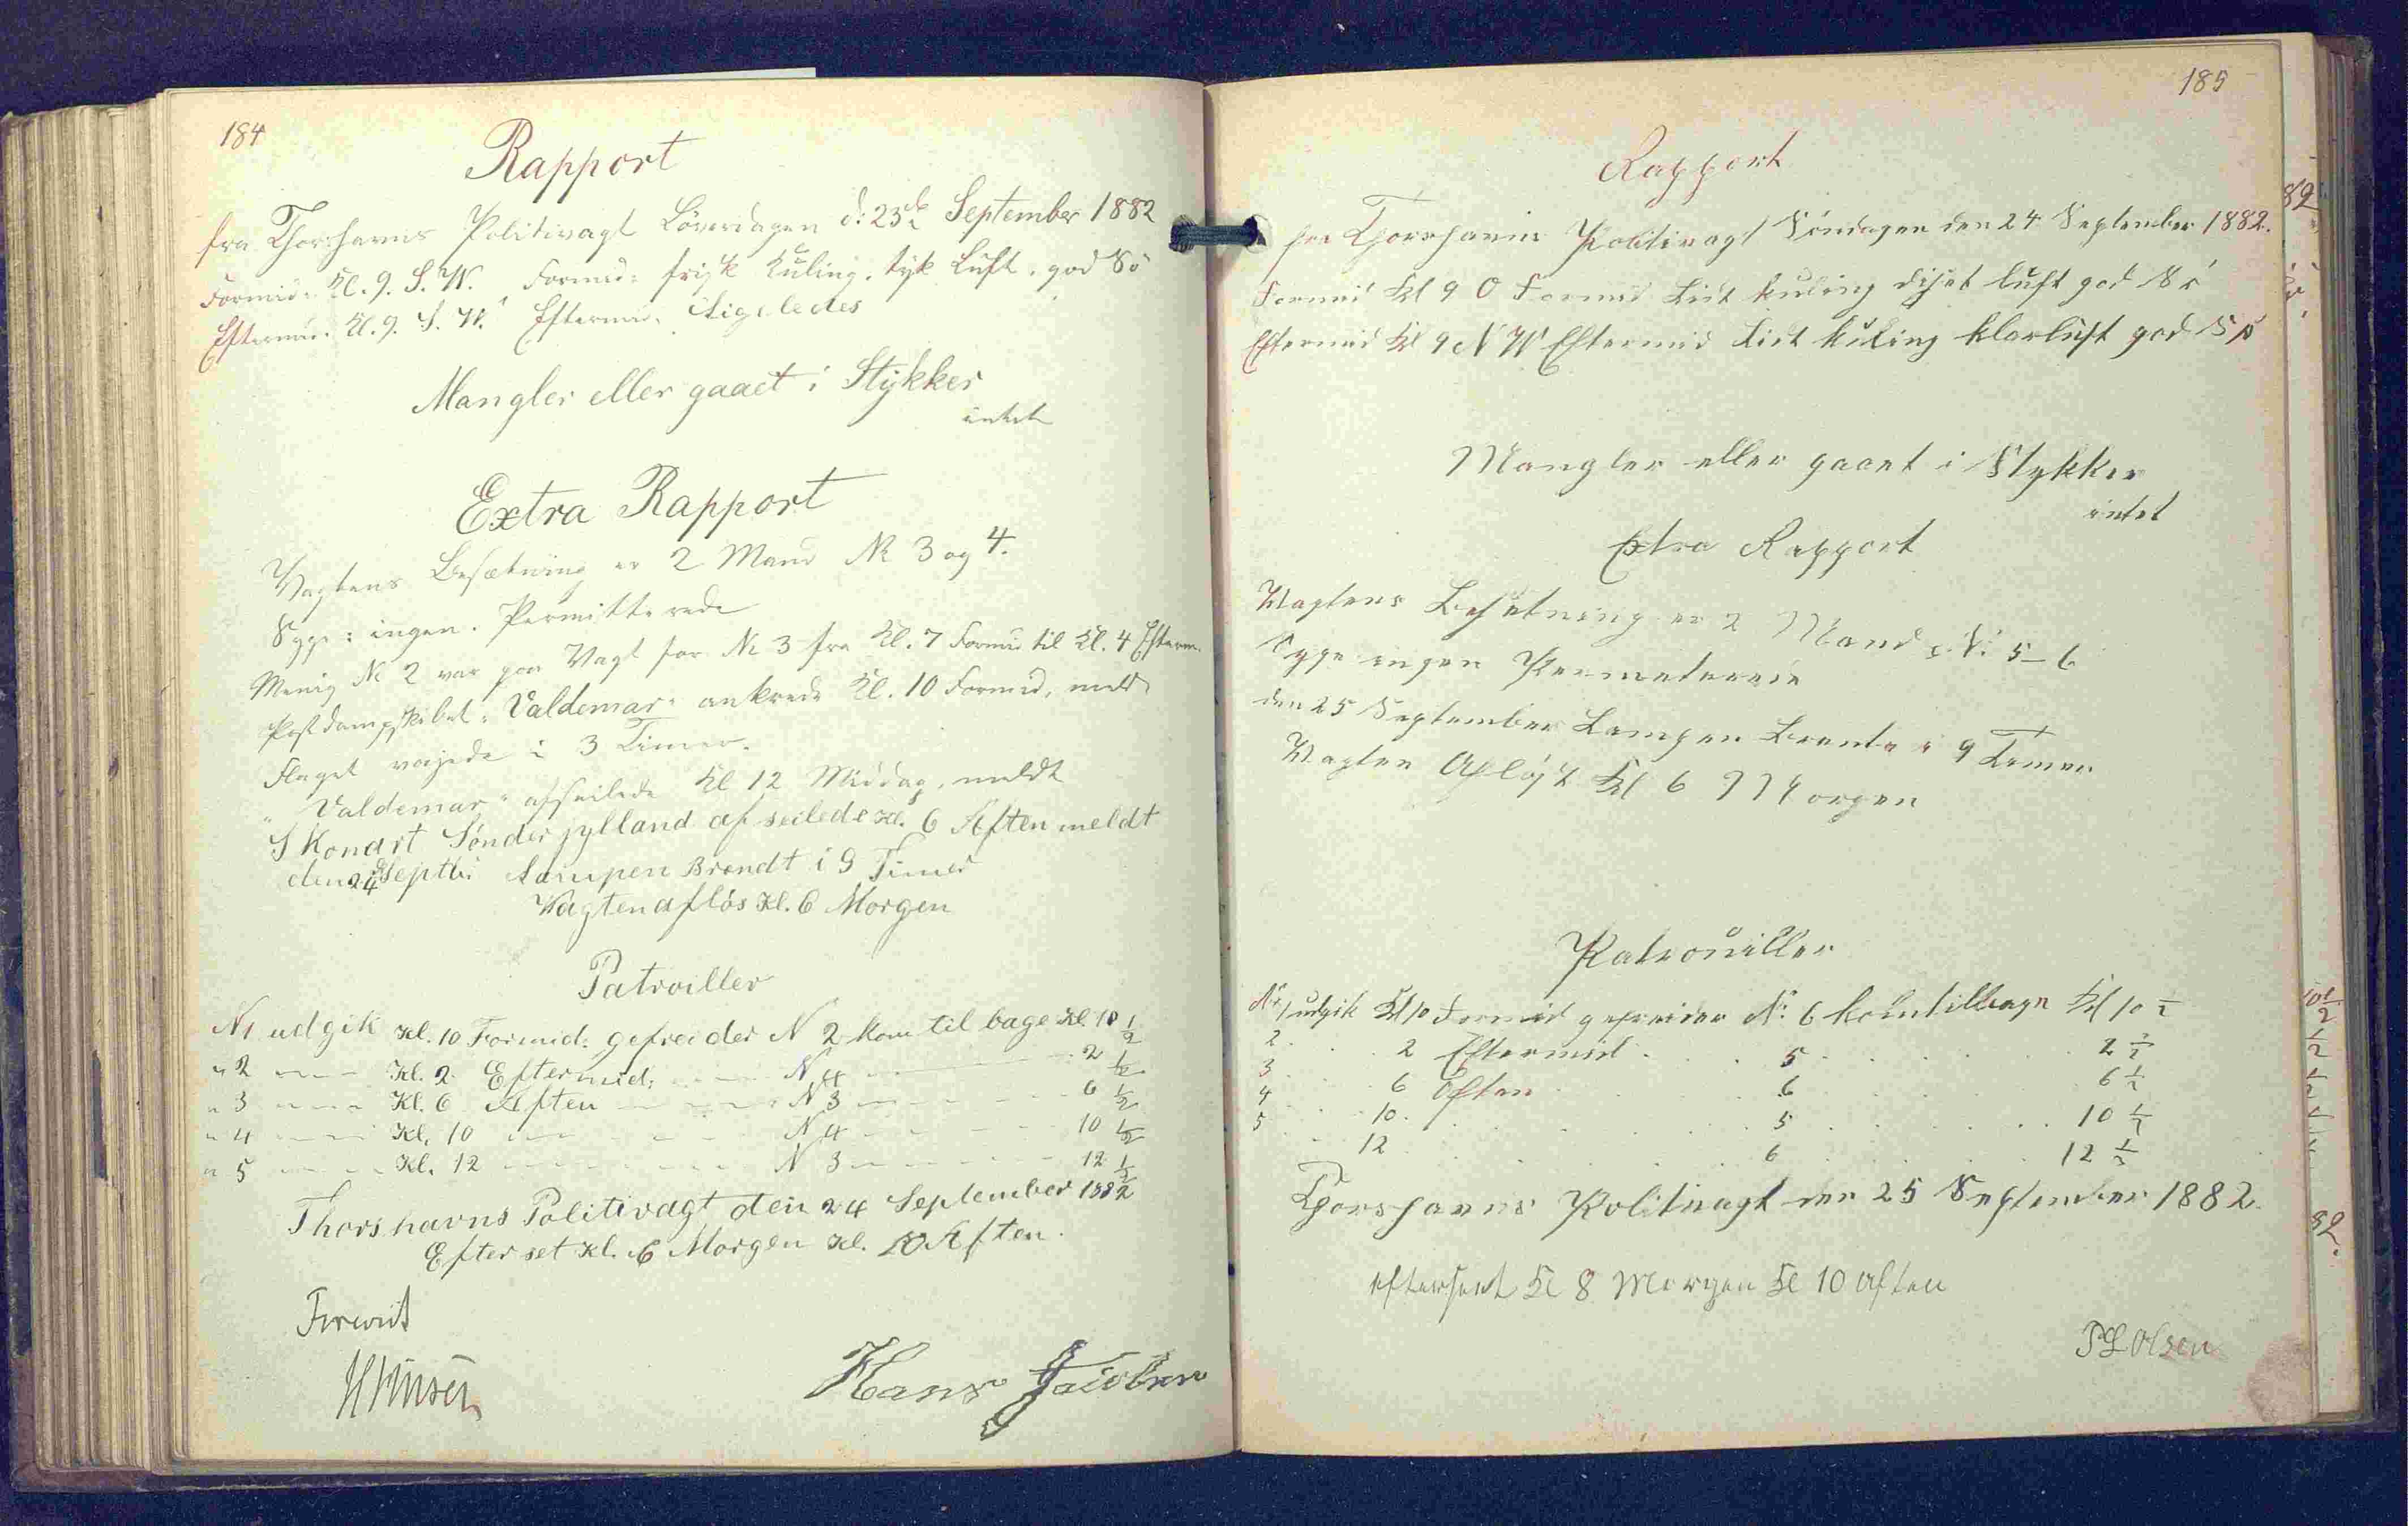 184
Rapport
fra Thorshavns Politivagt Löverdagen d: 23de September 1882
Formid. Kl. 9. S. W. Formid: frisk Kuling, tyk Luft, god Sö
Eftermid. Kl. 9. S. W. Eftermid. Ligeledes
Mangler eller gaaet i Stykker
intet
Extra Rapport
Vagtens Besætning er 2 Mand No 3 og 4.
Syge: ingen. Permitterede
Menig No 2 var paa Vagt for No 3 fra Kl. 7 Formid til Kl. 4 Efterm.
Postdampskibet "Valdemar" ankrede Kl. 10 Formid, meldt
Flaget vajede i 3 Timer.
"Valdemar" afseilede Kl 12 Middag, meldt
Skonart Sønderjylland afseilede Kl. 6 Aften meldt
den 24 Septbr Lampen Brendt i 9 Timer
Vagten afløs Kl. 6 Morgen
Patroiller
N 1 udgik Kl. 10 Formid: gefreider N 2 kom tilbage Kl. 10 1/2
" 2 Kl. 2 Eftermid: N 4 2 1/2
" 3 Kl. 6 Aften N 3 6 1/2
" 4 Kl. 10 N 4 10 1/2
" 5 Kl. 12 N 3 12 1/2
Thorshavns Politivagt den 24 September 1882
Efterset Kl. 6 Morgen Kl. 10 Aften.
Forevist
Hans Jacobsen
185
Rapport
fra Thorshavns Politivagt Söndagen den 24 September 1882.
Formid Kl 9 O Formid List kuling diset luft god Sö
Eftermid Kl 9 N W Eftermid List kuling klarluft god Sö
Mangler eller gaaet i Stykker
intet
Extra Rapport
Vagtens Besetning er 2 Mand No 5 - 6
Syge ingen Permeterede
den 25 September Lampen Brente i 9 Timer
Vagten Afløst Kl 6 Morgen
Patrouiller
Nr 1 udgik Kl 10 Formid gefreider No 6 kom tilbage Kl 10 1/2
2 2 Eftermid 5 2 1/2
3 6 Aften 6 6 1/2
4 10 5 10 1/2
5 12 6 12 1/2
Thorshavns Politivagt den 25 September 1882.
efterseet Kl 8 Morgen Kl 10 Aften
Olsen